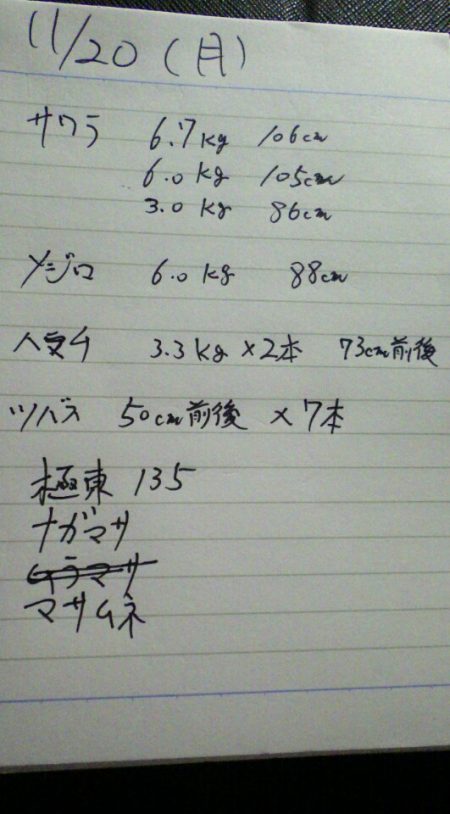 11/20 (月)
サワラ 6.7kg 106cm
6.0kg 105cm
3.0kg 86cm
メジロ 6.0kg 88cm
ハマチ 3.3kg×2本 73cm前後
ツバス 50cm前後 ×7本
極東 135
ナガマサ
ムラマサ
マサムネ